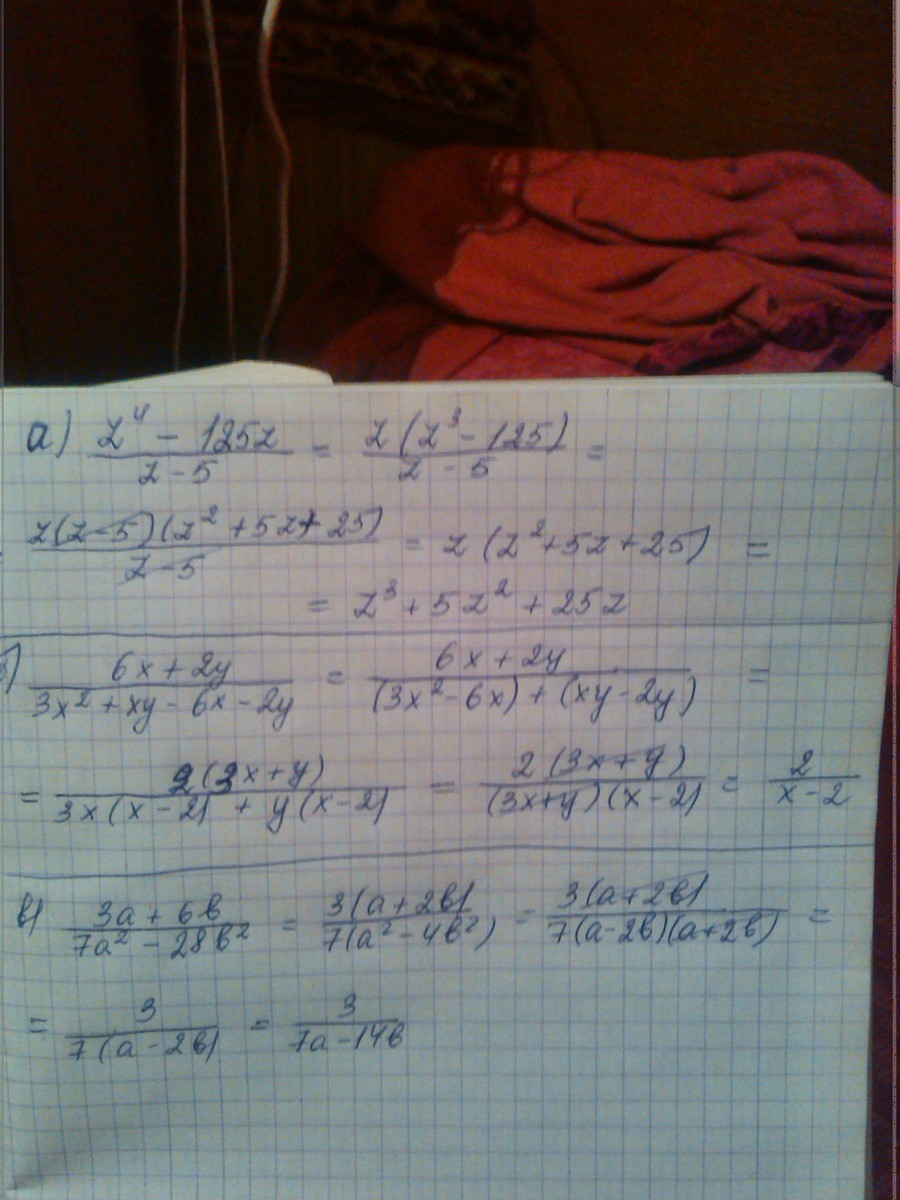 а) z⁴ - 125z / z - 5 = z(z³ - 125) / z - 5 =
z(z-5)(z² + 5z + 25) / z - 5 = z(z² + 5z + 25) =
= z³ + 5z² + 25z
б) 6x + 2y / 3x² + xy - 6x - 2y = 6x + 2y / (3x² - 6x) + (xy - 2y) =
= 2(3x + y) / 3x(x - 2) + y(x - 2) = 2(3x + y) / (3x + y)(x - 2) = 2 / x - 2
в) 3a + 6b / 7a² - 28b² = 3(a + 2b) / 7(a² - 4b²) = 3(a + 2b) / 7(a - 2b)(a + 2b) =
= 3 / 7(a - 2b) = 3 / 7a - 14b